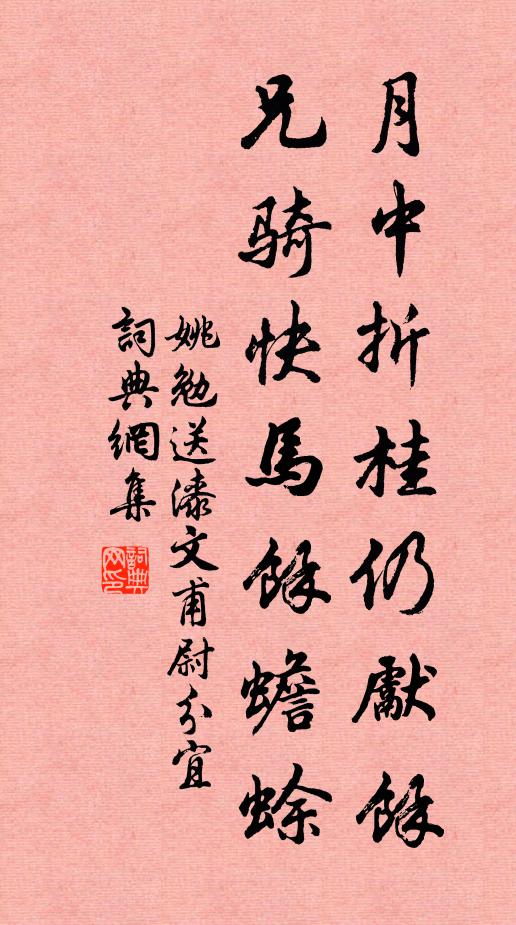 月中折桂仍獻餘
兄騎快馬餘蟾蜍
姚勉送漆文甫尉分宜
詞典網集
詞典网印